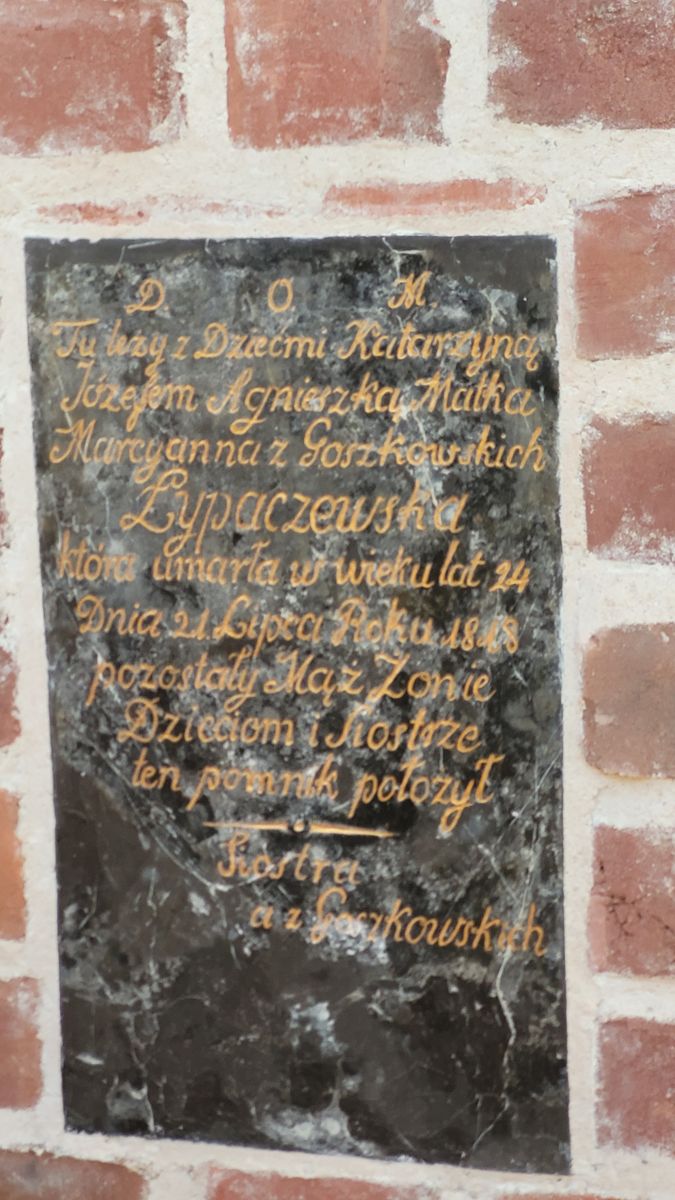 D. O. M.
Tu leży z Dziećmi Katarzyną
Józefem Agnieszką Matka
Marcyanna z Goszkowskich
Łypaczewska
która umarła w wieku lat 24
Dnia 21. Lipca Roku 1818
pozostały Mąż Żonie
Dzieciom i Siostrze
ten pomnik położył
Siostra
a z Goszkowskich